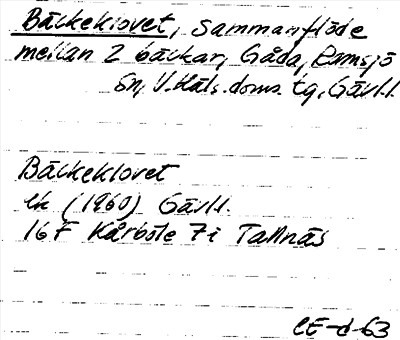 Bäckeklovet, sammanflöde
mellan 2 bäckar, Gåda, Ramsjö
sn, V. Häls. doms. tg, Gävl.l.
Bäckeklovet
ek (1960) Gävl.l.
16F Kårböle 7i Tallnäs
CE-d-63